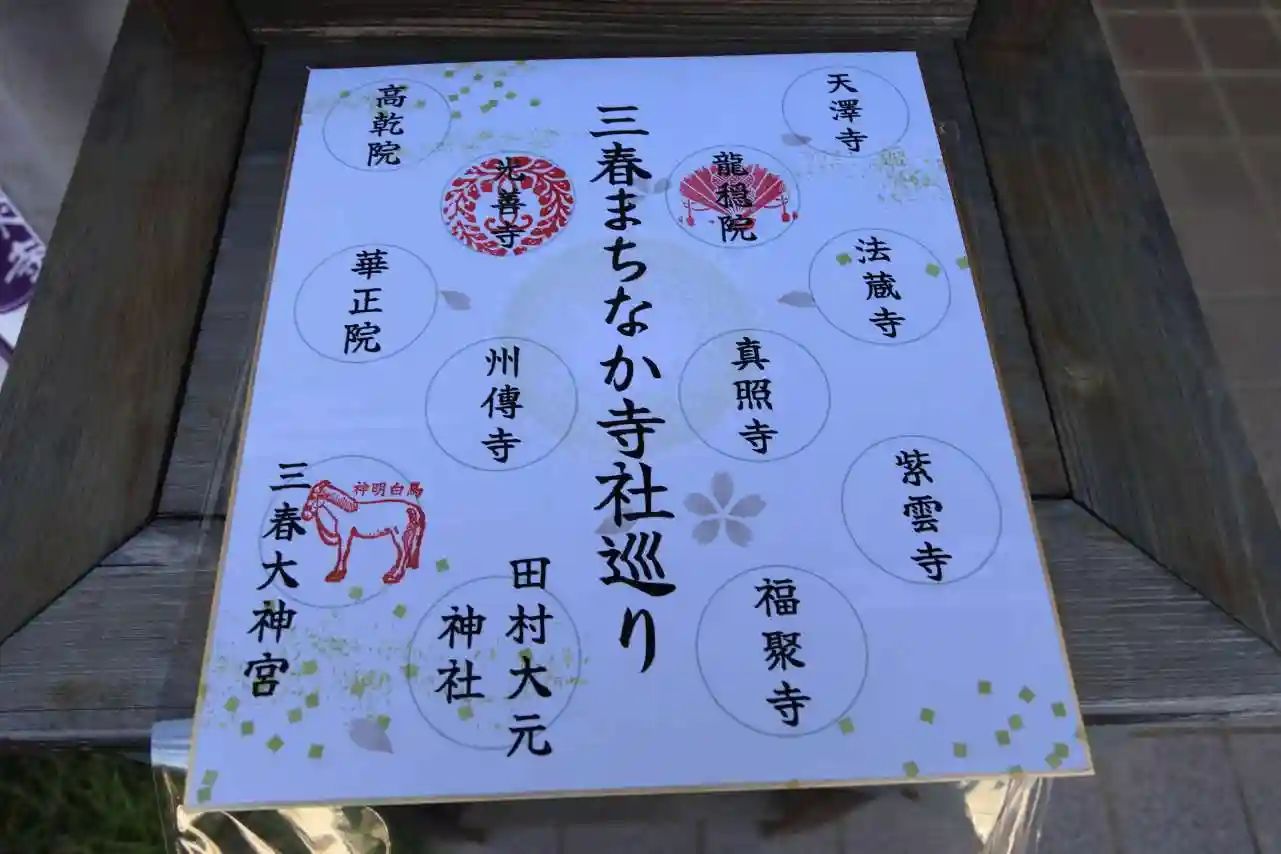 三春まちなか寺社巡り
天澤寺
龍穏院
法蔵寺
真照寺
紫雲寺
福聚寺
高乾院
光善寺
華正院
州傳寺
神明白馬
三春大神宮
田村大元
神社